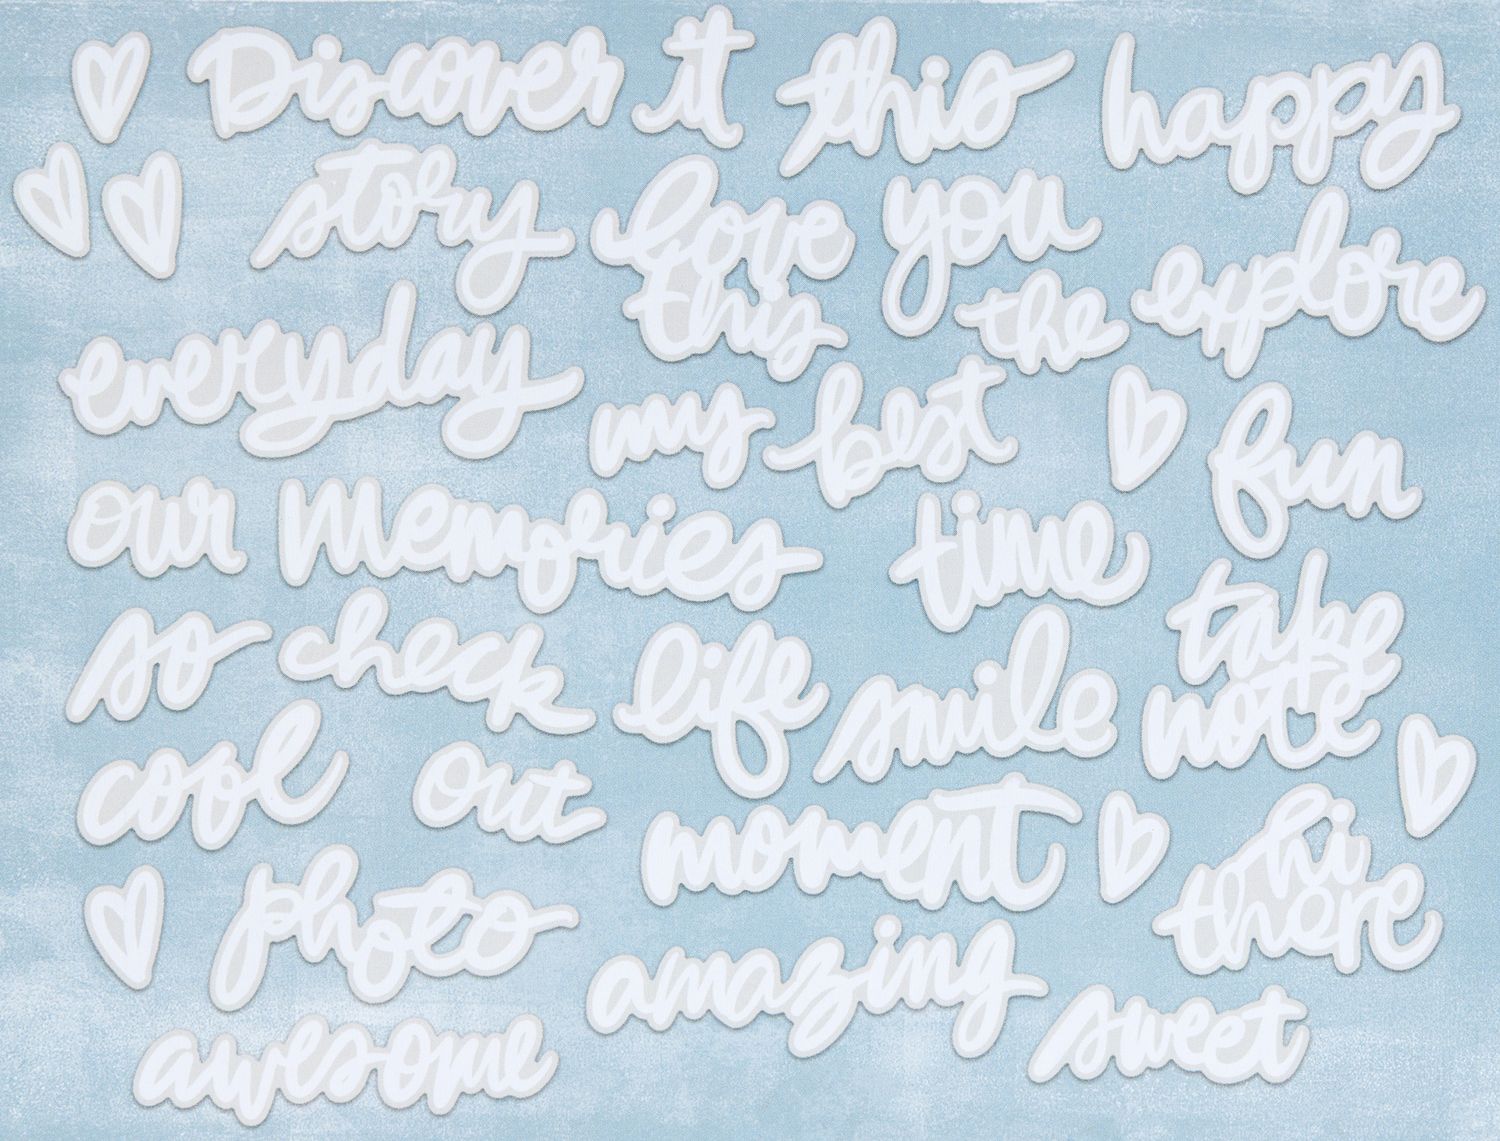 Discover it this happy
story love this you explore
everyday the
my best fun
our memories time
so check life smile take note
cool out moment hi there
photo amazing
awesome sweet